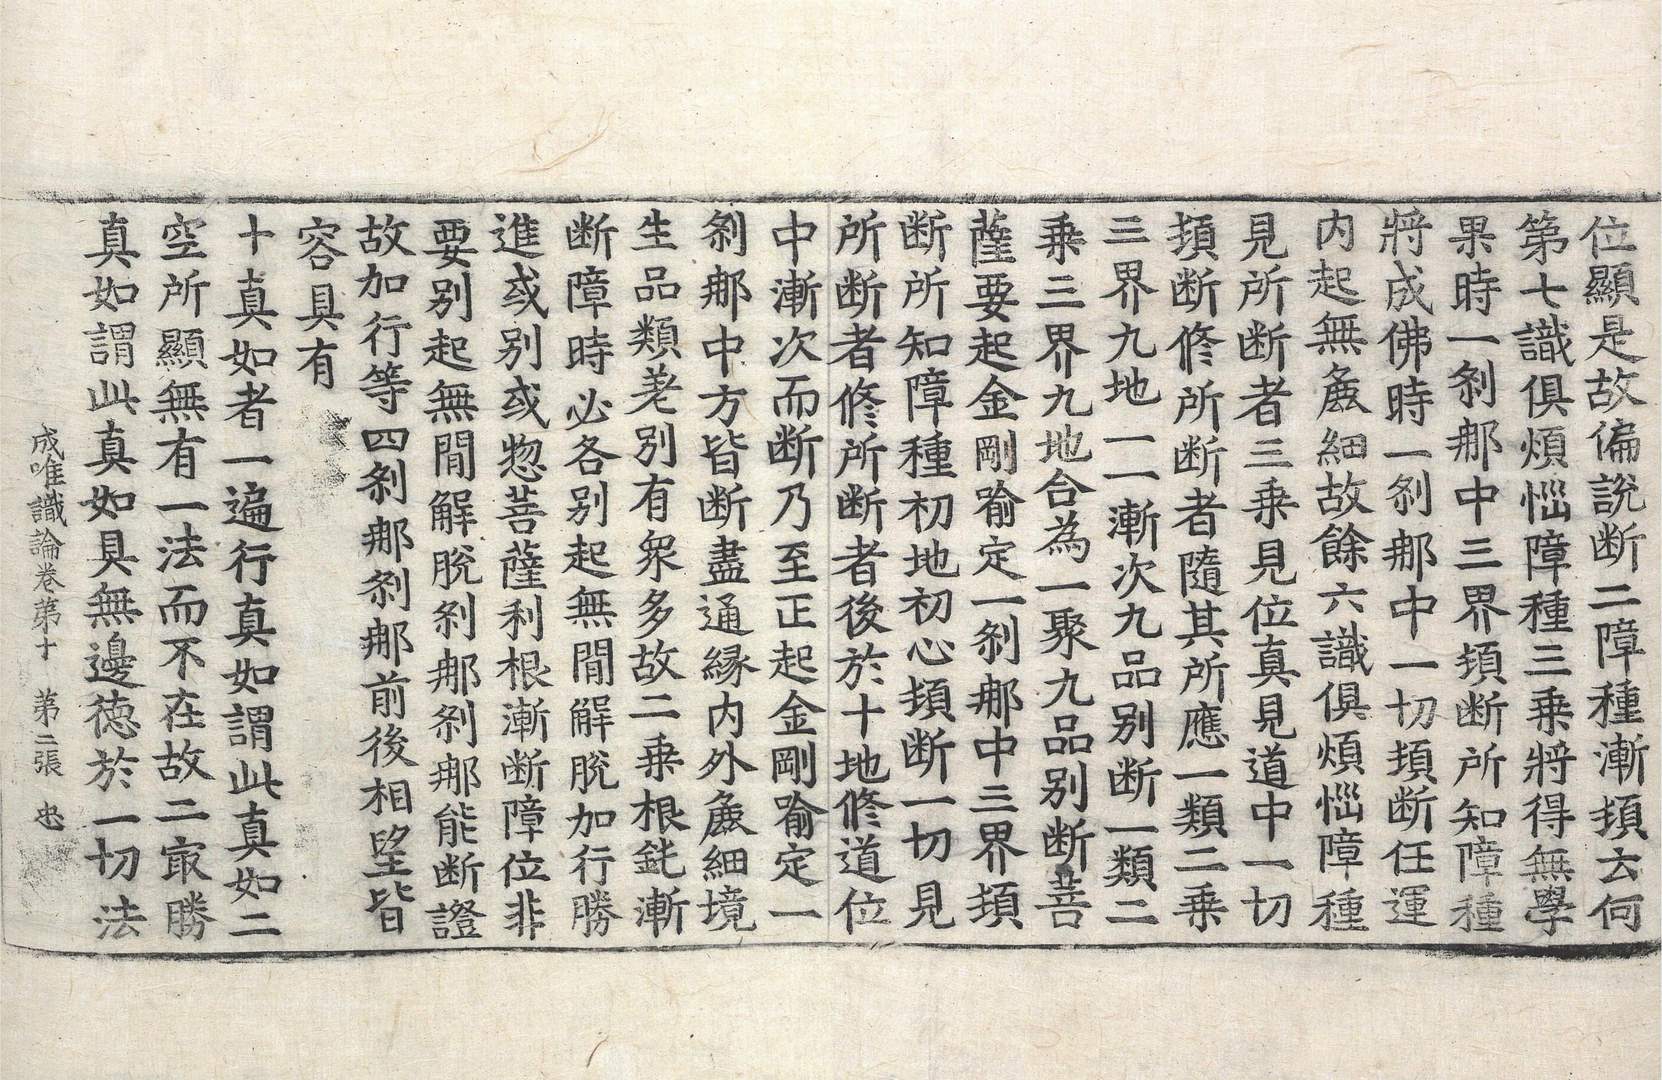 位顯是故偏說断二障種漸頓云何
第七識俱煩惱障種三乘將得無學
果時一剎那中三界頓断所知障種
將成佛時一剎那中一切頓断任運
内起無麁細故餘六識俱煩惱障種
見所断者三乘見位真見道中一切
頓断修所断者隨其所應一類二乘
三界九地一一漸次九品别断一類二
乘三界九地合為一聚九品别断菩
薩要起金剛喻定一剎那中三界頓
断所知障種初地初心頓断一切見
所断者修所断者後於十地修道位
中漸次而断乃至正起金剛喻定一
剎那中方皆断盡通緣内外麁細境
生品類差别有衆多故二乘根鈍漸
断障時必各别起無間解脫加行勝
進或别或惣菩薩利根漸断障位非
要别起無間解脫剎那剎那能断證
故加行等四剎那剎那前後相望皆
容具有
十真如者一遍行真如謂此真如二
空所顯無有一法而不在故二冣勝
真如謂此真如具無邊德於一切法
成唯識論卷第十 第二張 忠